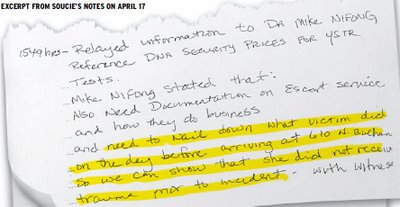 EXCERPT FROM SOUCIE'S NOTES ON APRIL 17
1549 hrs - Relayed information to DA Mike Nifong,
Reference DNA Security Prices for YSTR
Tests.
Mike Nifong stated that:
Also Need Documentation on Escort service
and how they do business
and need to Nail down what victim did
on the day before arriving at 610 N. Buchan
So we can show that she did not receive
trauma prior to incident - with witness